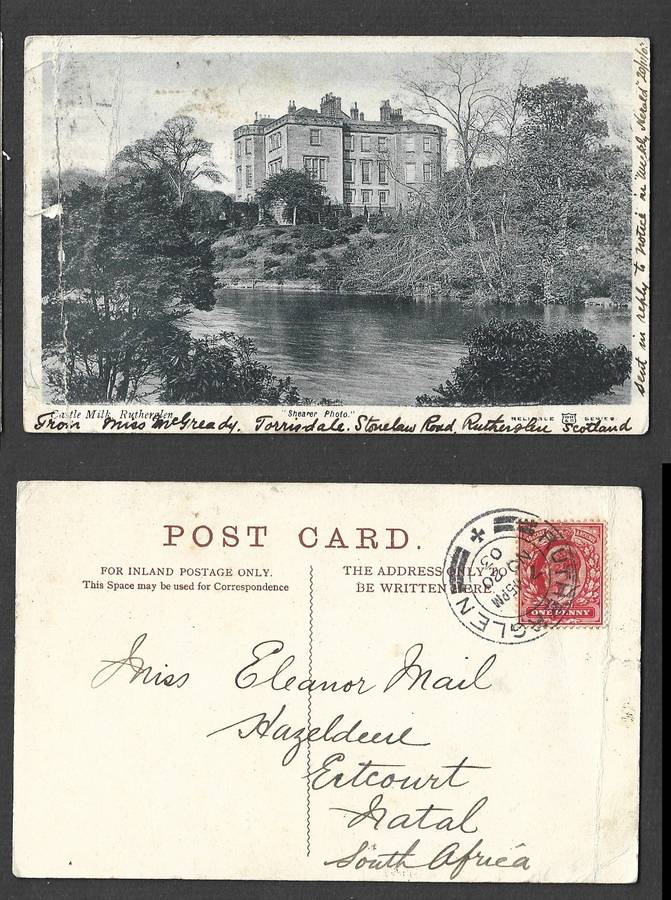 Castle Milk, Rutherglen
"Shearer Photo."
RELIANCE SERIES
From Miss McGready. Torrisdale. Stonelaw Road, Rutherglen Scotland
sent in reply to notice in "Weekly Herald"
POST CARD.
FOR INLAND POSTAGE ONLY.
This Space may be used for Correspondence
THE ADDRESS ONLY
BE WRITTEN HERE
RUTHERGLEN
NO 20
03
ONE PENNY
Miss Eleanor Mail
Hazeldene
Estcourt
Natal
South Africa